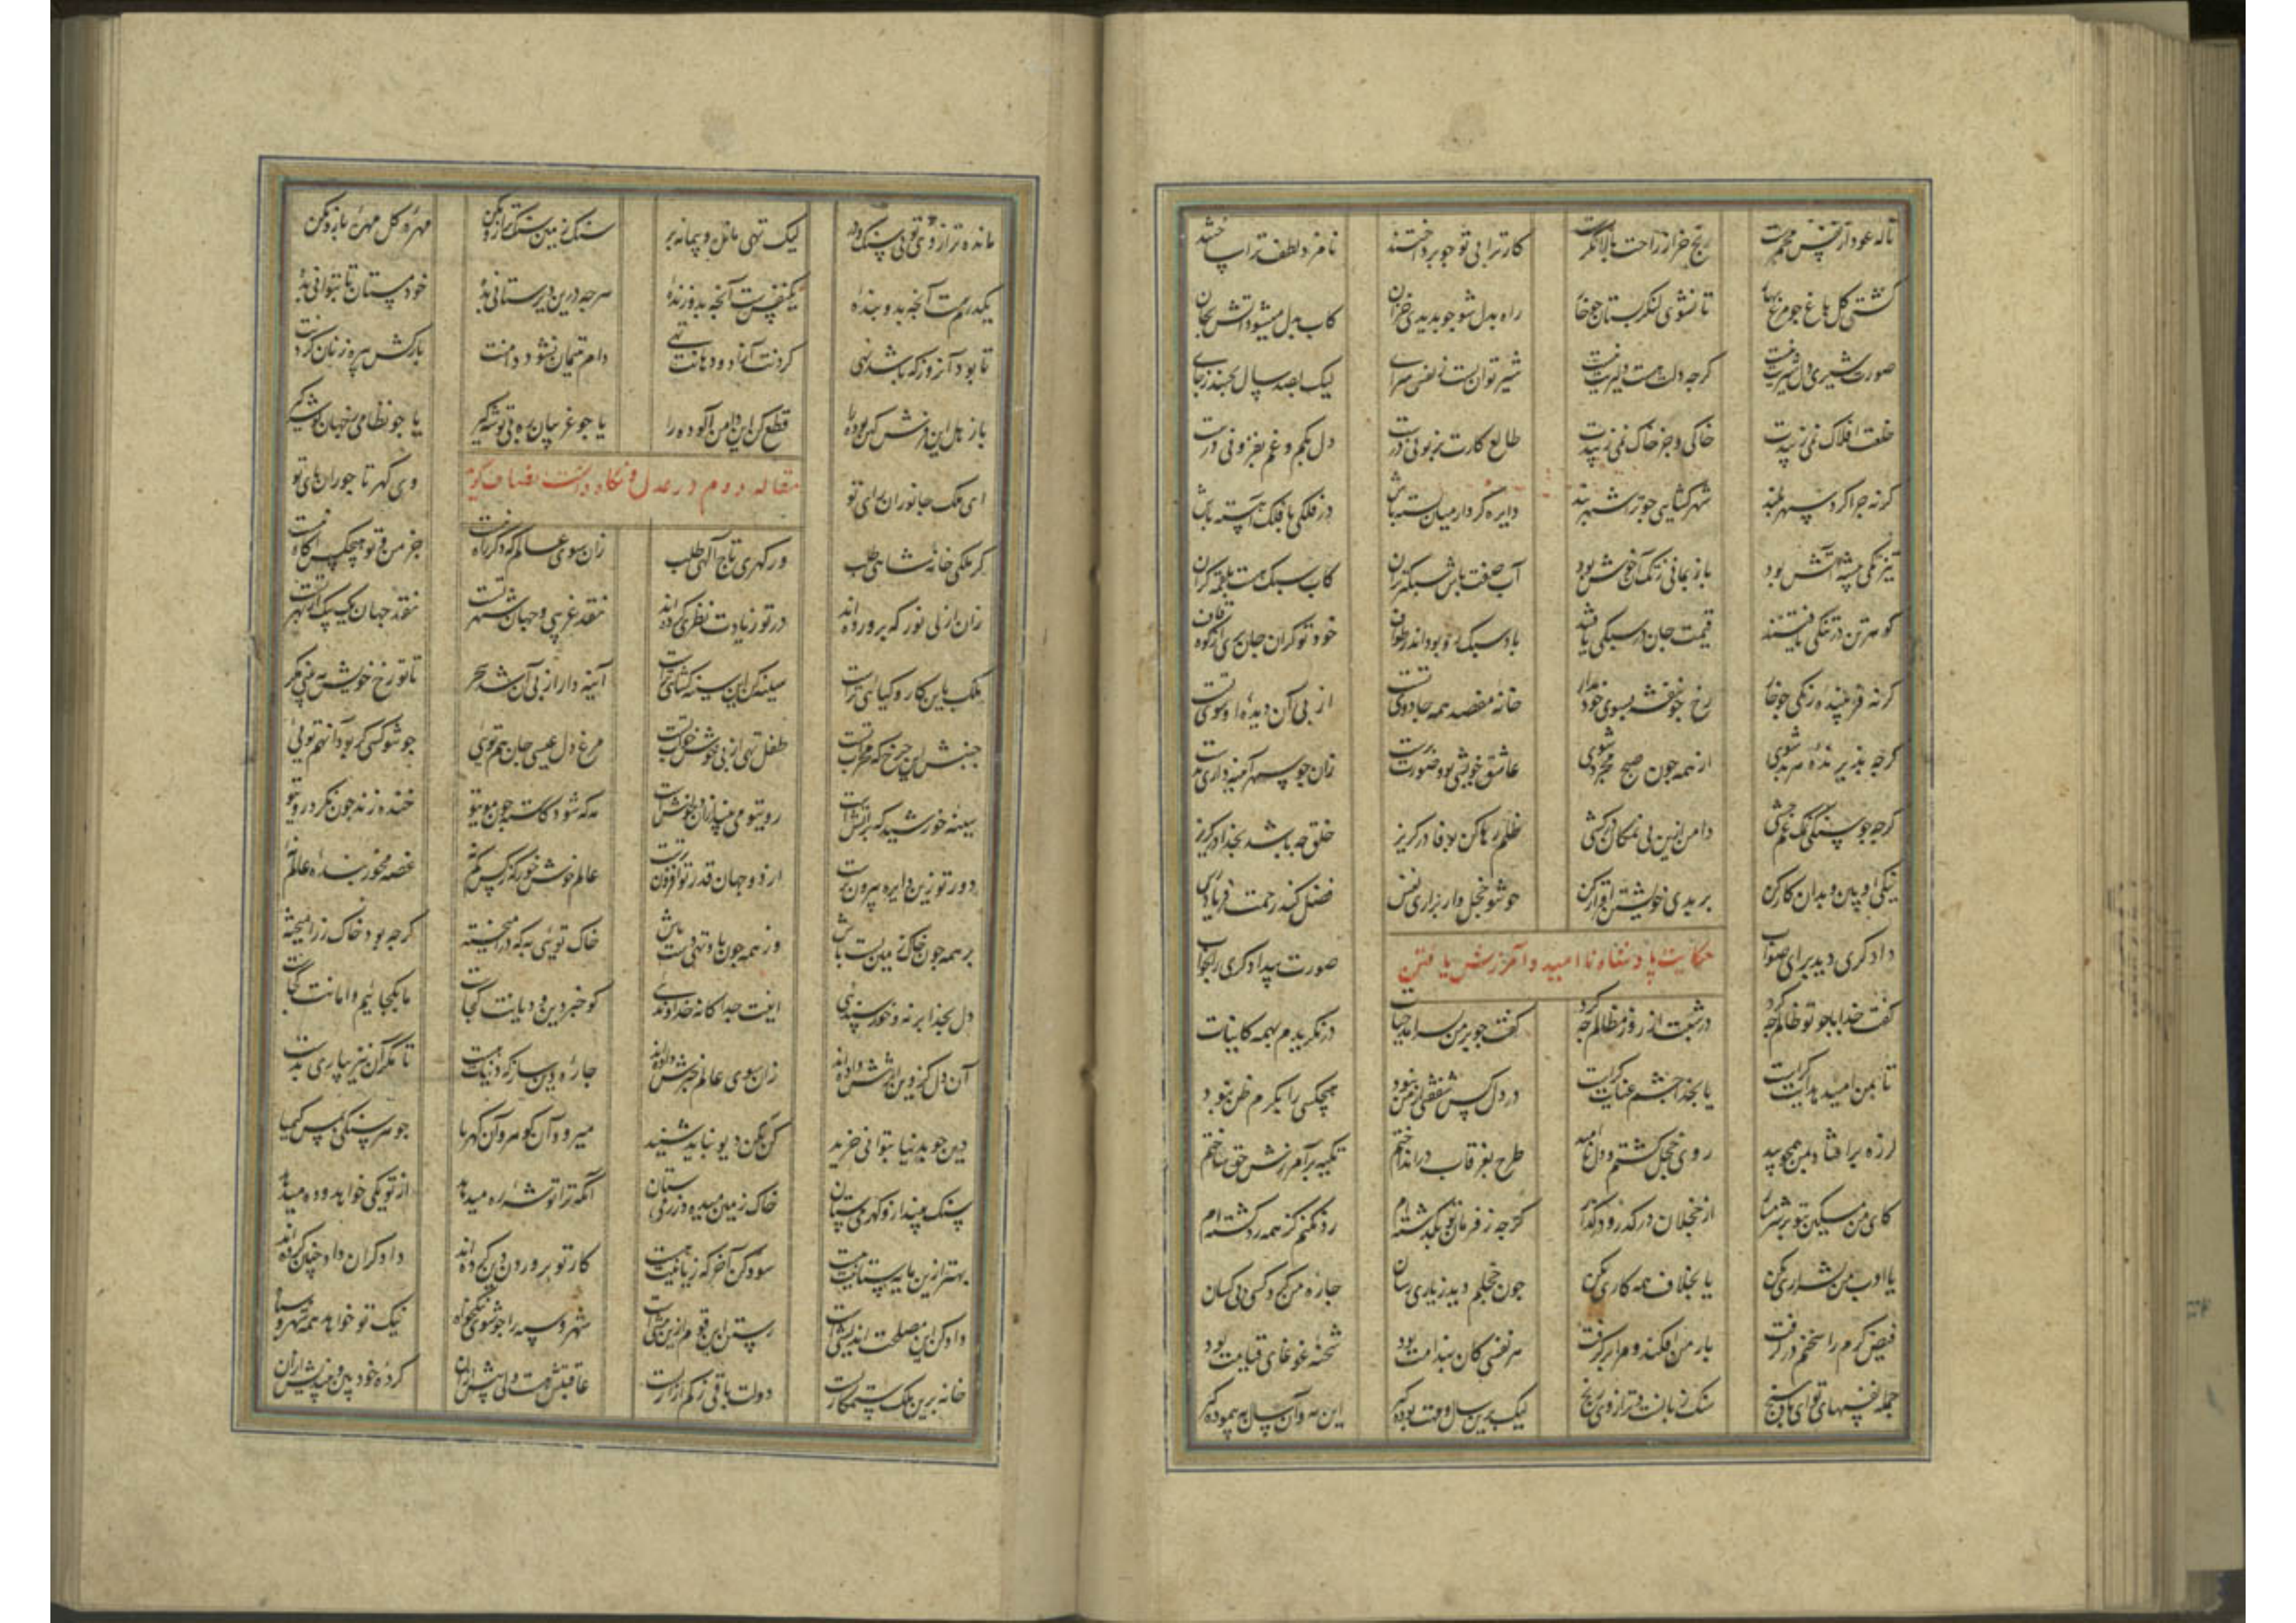 ناله عود از نفس مجمرست رنج خر از راحت پالانکرست کار ترا بی تو جو پرداختند نامزد لطف ترا ساختند
کشتی کل باغ جو مرغ بهار تا نشوی لنکر بستان جو خار راه بدل شو جو بدیدی خزان کاب بدل میشود آتش بجان
صورت شیری دل شیریت نیست کرجه دلت هست دلیریت نیست شیر توان بست ز نقش سرای لیک بصد سال نجنبد ز جای
خلعت افلاک نمی زیبدت خاکی و جز خاک نمی زیبدت طالع کارت بزبونی درست دل بکم و غم بفزونی درست
کرنه جرا کرد سپهر بلند شهر کشایی جو ترا شهربند دایره کردار میان بسته باش در فلکی با فلک آهسته باش
تیز تکی پیشه آتش بود باز بمانی ز تک آن خوش بود آب صفت باش و سبکتر بران کاب سبک هست بقیمت کران
کوهر تن در تنکی یافتند قیمت جان در سبکی یافتند باد سبک روح بود در طواف خود تو کران جان تری از کوه قاف
کرنه فریبنده رنکی جو خار رخ جو بنفشه بسوی خود مدار خانه مصقل همه جا روی تست از پی آن دیده او سوی تست
کرجه پذیرنده هر حد شوی از همه جون صبح مجرد شوی عاشق خویشی و صورت پرست زان جو سپهر آینه داری بدست
کرجه جو سنکی نمک غم چشی دامن ازین بی نمکان درکشی ظلم رها کن بوفا در کریز خلق جه باشد بخدا در کریز
نیکی او بین و بدان کار کن بر بدی خویشتن اقرار کن جو شو خجل وار براری نفس فضل کند رحمت فریادرس
دادکری دید برای صواب حکایت پادشاه ناامید و آمرزش یافتن صورت بیدادکری را بخواب
کفت خدا با جو تو ظالم جه کرد در شبت از روز مظالم جه کرد کفت جو بر من بسر آمد حیات در نکریدم بهمه کاینات
تا بمن امید هدایت کراست یا بخدا جشم عنایت کراست در دل کس شفقتی از من نبود هیجکسی را بکرم ظن نبود
لرزه برافتاد بمن همجو بید روی خجل کشتم و دل ناامید طرح بغرقاب درانداختم تکیه بر آمرزش حق ساختم
کای من مسکین بتو بر شرمسار از خجلان درکذر و درکذار کرجه ز فرمان تو بکذشته ام رد مکنم کز همه رد کشته ام
یا ادب من بشراری بکن یا بخلاف همه کاری بکن جون خجلم دید ز یاری رسان جاره من کرد کس بی کسان
فیض کرم را سخنم درکرفت بار من افکند و مرا برکرفت هر نفسی کان بندامت بود شحنه غوغای قیامت بود
جمله نفسهای تو ای بادسنج سنک زیانست و ترازوی رنج لیک برین سال و مهت بوده کیر این مه و آن سال پیموده کیر
مانده ترازوی تو بی سنک و در لیک تهی مانده و پیمانه پر سنک زمین سنک ترازو مکن مهره کل مهره بازو مکن
یکدرمست آنجه بدو بنده یکنفسست آنجه بدو زنده هرجه درین دیر ستانی بده خود مستان تا بتوانی بده
تا بود آنروز که باشد بهی کردنت آزاد و دهانت تهی دام یتیمان نشود دامنت بارکش پیره زنان کردنت
باز هل این فرش کهن بوده را قطع کن این دامن آلوده را یا جو غریبان پی ره توشه کیر یا جو نظامی ز جهان کوشه کیر
ای ملک جانوران رای تو مقاله دوم در عدل و نکاه داشت انصاف کوید وی کهر تاجوران پای تو
کر ملکی خانه شاهی طلب ور کهری تاج الهی طلب زان سوی عالم که دکر راه نیست جز من و تو هیجکس آکاه نیست
زان ازلی نور که پرورده اند در تو زیادت نظری کرده اند نقد غریبی و جهان شهر تست نقد جهان یک بیک از بهر تست
ملک باین کار و کیایی تراست سینه کن این سینه کشایی تراست آینه دار از پی آن شد سحر تا تو رخ خویش ببینی مکر
جنبش این جرخ که محراب تست طفل تهی از پی خوش خواب تست مرغ دل عیسی جان هم تویی جو تو کسی کر بود آنهم تویی
سینه خورشید که پر آتشست روی تو می بیند از آن دلخوشست مه که شود کاسته جون موی تو خنده زند جون نکرد روی تو
دور تو زین دایره بیرونترست از دو جهان قدر تو افزونترست عالم خوش خور که ز کس کم نه غصه مخور بنده عالم نه
بر همه جون خاک زمین پست باش وز همه جون باد تهی دست باش خاک تویی به که در آمیخته کرجه بود خاک زر آمیخته
دل بخدا بر نه و خورسندیی اینت جداکانه خداوندیی کو خبر دین و دیانت کجاست ما بکجاییم و امانت کجاست
آن دل کز دین اثرش داده اند زان سوی عالم خبرش داده اند جاره دین ساز که دنیات هست تا مکر آن نیز بیاری بدست
دین جو بدنیا بتوانی خرید کن مکن دیو نباید شنید میرود آن کوهر و آن کهربا جو هر سنکی کیمیا
سنک مینداز و کهر می ستان خاک زمین میده و زر می ستان آنکه ترا توشه ره میدهد از تو یکی خواهد و ده میدهد
بهتر ازین مایه ستانیت نیست سود کن آخر که زیانیت نیست کار تو پروردن دین کرده اند دادکران داد جنین کرده اند
داد کن این مصلحت اندیشه ایست رستن این قوم ازین پیشه ایست شهر و سپه را جو شوی نیکخواه نیک تو خواهد همه شهر و سپاه
خانه بر این ملک ستمکاریست دولت باقی ز کم آزاریست عاقبتیش هست ولی پیش از آن کرده خود بین و بیندیش از آن